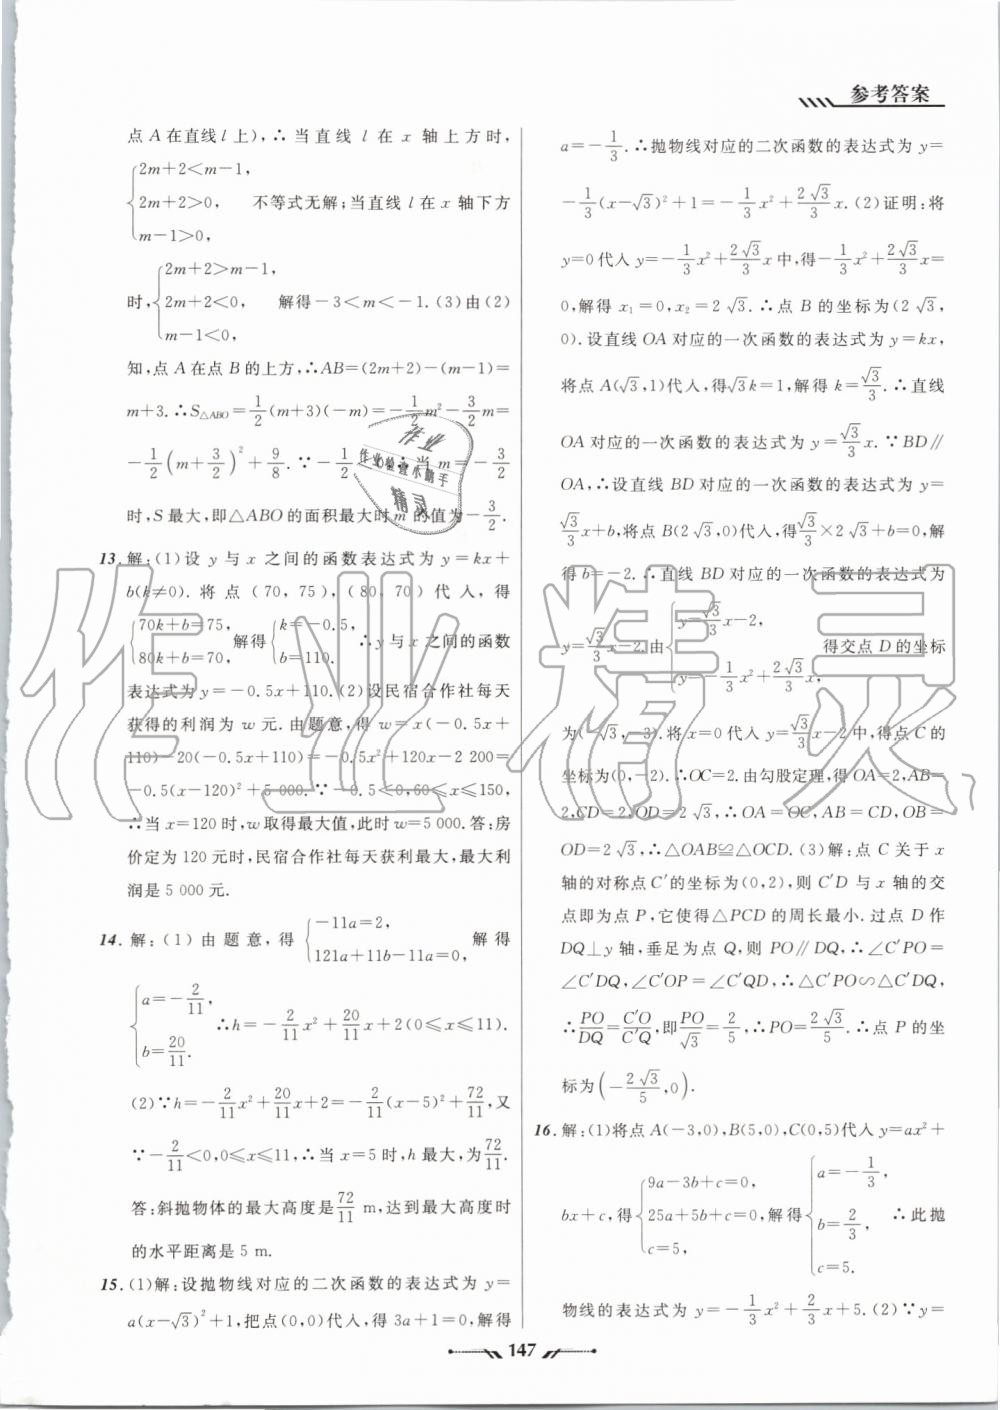 参考答案
点 A 在直线 l 上),∴当直线 l 在 x 轴上方时,
{2m+2<m-1,
2m+2>0, 不等式无解;当直线 l 在 x 轴下方
m-1>0,
{2m+2>m-1,
时, 2m+2<0, 解得-3<m<-1. (3)由(2)
m-1<0,
知,点 A 在点 B 的上方,∴AB=(2m+2)-(m-1)=
m+3.∴S△ABO=1/2(m+3)(-m)=-1/2m²-3/2m=
-1/2(m+3/2)²+9/8.∵-1/2 ∴当 m=-3/2
时,S 最大,即△ABO 的面积最大时 m 的值为-3/2.
13. 解:(1)设 y 与 x 之间的函数表达式为 y=kx+
b(k≠0). 将点(70,75),(80,70)代人,得
{70k+b=75, 80k+b=70, 解得{k=-0.5, b=110. ∴y 与 x 之间的函数
表达式为 y=-0.5x+110. (2)设民宿合作社每天
获得的利润为 w 元. 由题意,得 w=x(-0.5x+
110)-20(-0.5x+110)=-0.5x²+120x-2 200=
-0.5(x-120)²+5 000.∵-0.5<0,60≤x≤150,
∴当 x=120 时,w 取得最大值,此时 w=5 000. 答:房
价定为 120 元时,民宿合作社每天获利最大,最大利
润是 5 000 元.
14. 解:(1)由题意,得{-11a=2, 121a+11b-11a=0, 解得
{a=-2/11, b=20/11. ∴h=-2/11x²+20/11x+2(0≤x≤11).
(2)∵h=-2/11x²+20/11x+2=-2/11(x-5)²+72/11,又
∵-2/11<0,0≤x≤11,∴当 x=5 时,h 最大,为72/11.
答:斜抛物体的最大高度是72/11 m,达到最大高度时
的水平距离是 5 m.
15. (1)解:设抛物线对应的二次函数的表达式为 y=
a(x-√3)²+1,把点(0,0)代入,得 3a+1=0,解得
a=-1/3.∴抛物线对应的二次函数的表达式为 y=
-1/3(x-√3)²+1=-1/3x²+2√3/3x. (2)证明:将
y=0 代入 y=-1/3x²+2√3/3x 中,得-1/3x²+2√3/3x=
0,解得 x₁=0,x₂=2√3.∴点 B 的坐标为(2√3,
0). 设直线 OA 对应的一次函数的表达式为 y=kx,
将点 A(√3,1)代入,得√3k=1,解得 k=√3/3.∴直线
OA 对应的一次函数的表达式为 y=√3/3x.∵BD∥
OA,∴设直线 BD 对应的一次函数的表达式为 y=
√3/3x+b,将点 B(2√3,0)代入,得√3/3×2√3+b=0,解
得 b=-2.∴直线 BD 对应的一次函数的表达式为
y=√3/3x-2. 由{y=√3/3x-2, y=-1/3x²+2√3/3x, 得交点 D 的坐标
为(-√3,-3). 将 x=0 代入 y=√3/3x-2 中,得点 C 的
坐标为(0,-2).∴OC=2. 由勾股定理,得 OA=2,AB=
2,CD=2,OD=2√3,∴OA=OC,AB=CD,OB=
OD=2√3,∴△OAB≌△OCD. (3)解:点 C 关于 x
轴的对称点 C′的坐标为(0,2),则 C′D 与 x 轴的交
点即为点 P,它使得△PCD 的周长最小. 过点 D 作
DQ⊥y 轴,垂足为点 Q,则 PO∥DQ,∴∠C′PO=
∠C′DQ,∠C′OP=∠C′QD,∴△C′PO∽△C′DQ,
∴PO/DQ=C′O/C′Q,即PO/√3=2/5,∴PO=2√3/5.∴点 P 的坐
标为(-2√3/5,0).
16. 解:(1)将点 A(-3,0),B(5,0),C(0,5)代入 y=ax²+
bx+c,得{9a-3b+c=0, 25a+5b+c=0, c=5, 解得{a=-1/3, b=2/3, c=5. ∴此抛
物线的表达式为 y=-1/3x²+2/3x+5. (2)∵y=
147
作业
作业检查小助手
精灵
作业精灵